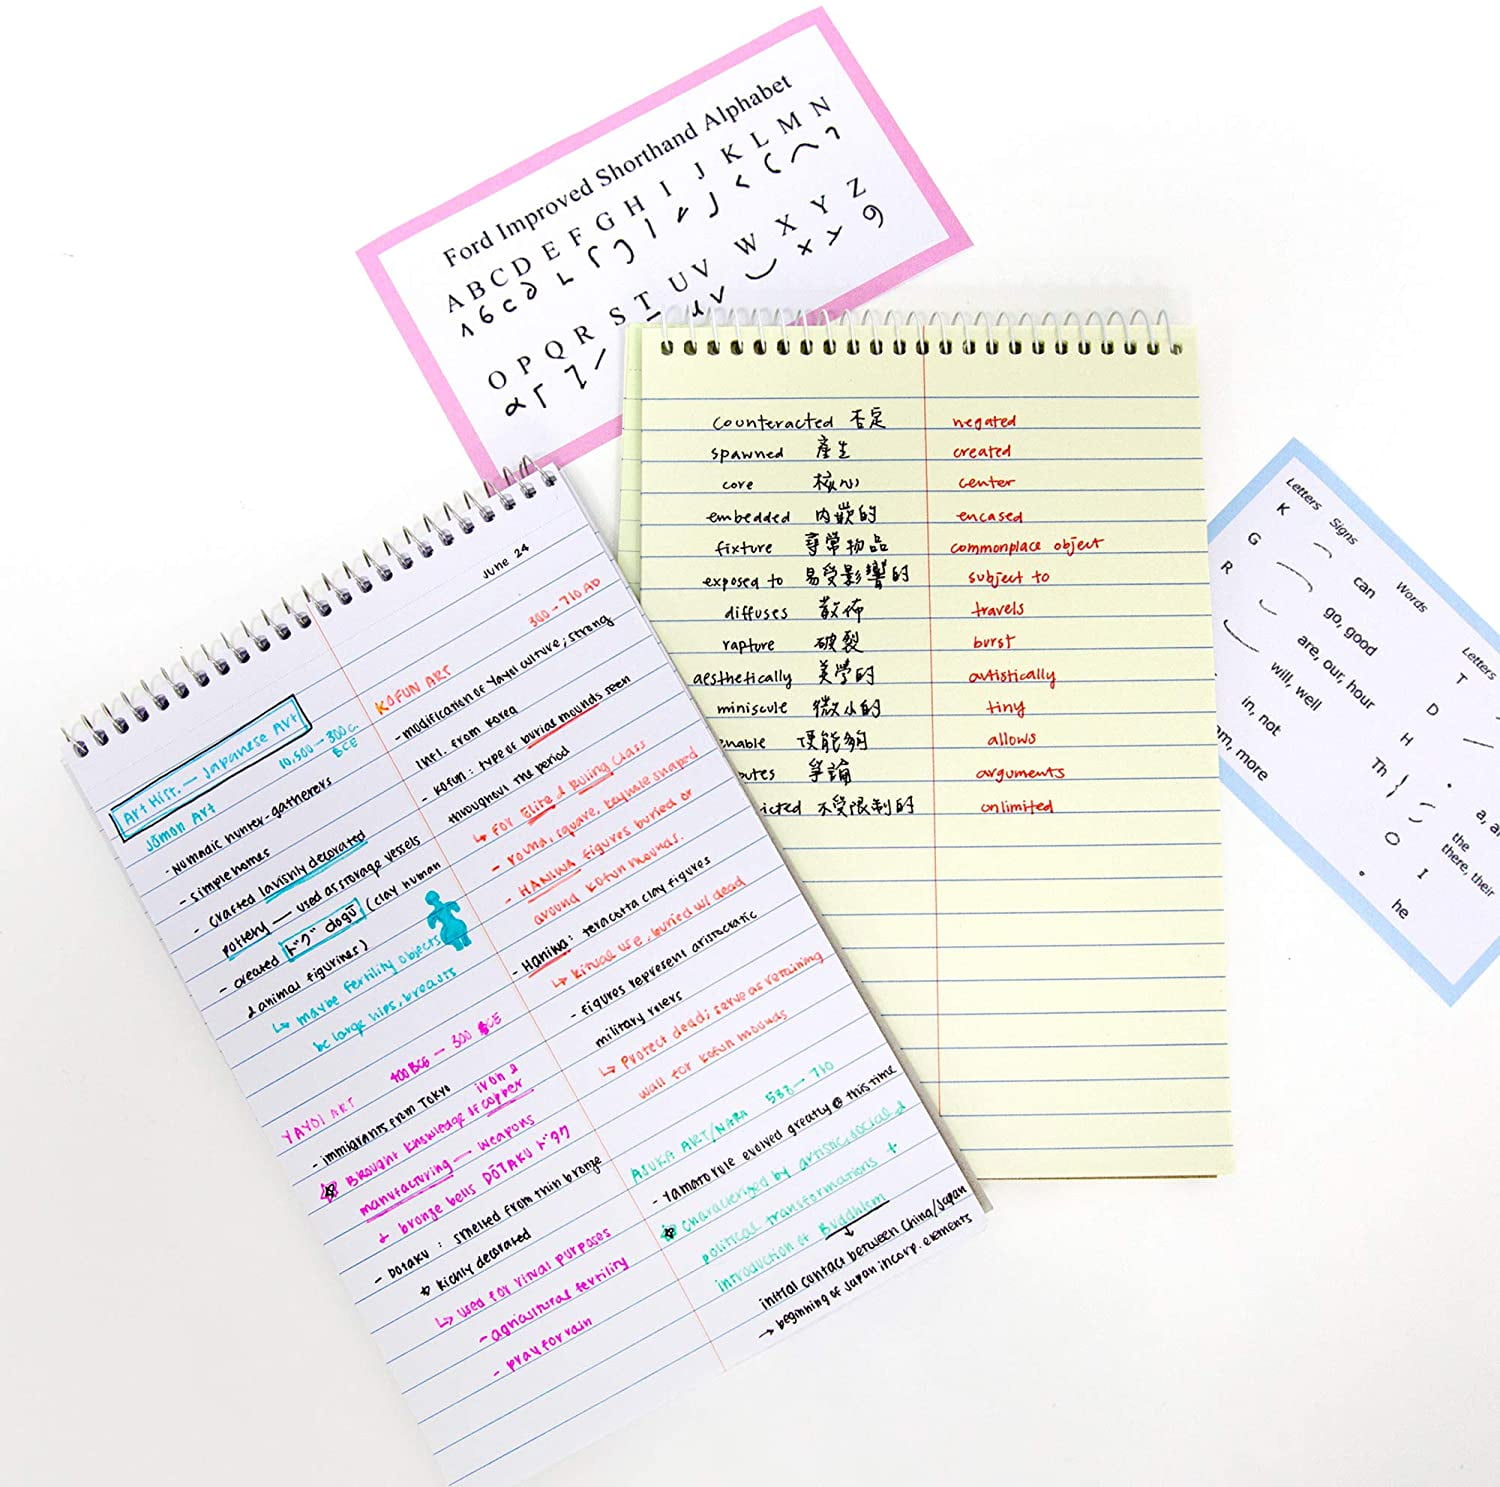 Ford Improved Shorthand Alphabet
A B C D E F G H I J K L M N
O P Q R S T U V W X Y Z
June 24
Art Hist. — Japanese Art
10,500 → 300 c.
BCE
Jōmon Art
- Nomadic hunter-gatherers
- simple homes
- crafted lavishly decorated
pottery — used as storage vessels
- created ドグ dogū (clay human
& animal figurines)
↳ maybe fertility objects
bc large hips, breasts
400 BCE — 300 CE
YAYOI ART
- immigrants from Tokyo
iron &
Brought knowledge of copper
manufacturing — weapons
& bronze bells DŌTAKU ドタク
- DOTAKU : smelted from thin bronze
richly decorated
↳ used for ritual purposes
- agricultural fertility
- pray for rain
300 → 710 AD
KOFUN ART
- modification of Yayoi culture; strong
infl. from Korea
- Kofun : type of burial mounds seen
throughout the period
↳ For Elite & Ruling Class
- round, square, keyhole shaped
- HANIWA figures buried or
around Kofun mounds.
- Haniwa: teracotta clay figures
↳ Ritual use, buried w/ dead
- figures represent aristocratic
military rulers
↳ Protect dead; serve as retaining
wall for Kofun mounds
ASUKA ART/NARA 538 → 710
- Yamato rule evolved greatly @ this time
characterized by artistic, social, &
political transformations +
introduction of Buddhism
initial contact between China/Japan
→ beginning of Japan incorp. elements
counteracted 否定 negated
spawned 產生 created
core 核心 center
embedded 內嵌的 encased
fixture 尋常物品 commonplace object
exposed to 易受影響的 subject to
diffuses 散佈 travels
rapture 破裂 burst
aesthetically 美學的 artistically
miniscule 微小的 tiny
enable 使能夠 allows
putes 爭論 arguments
icted 不受限制的 unlimited
Letters Signs Words Letters
K can
G go, good
R are, our, hour
will, well
in, not
am, more
T
D
H
Th
O
I
a, a
the
there, their
he